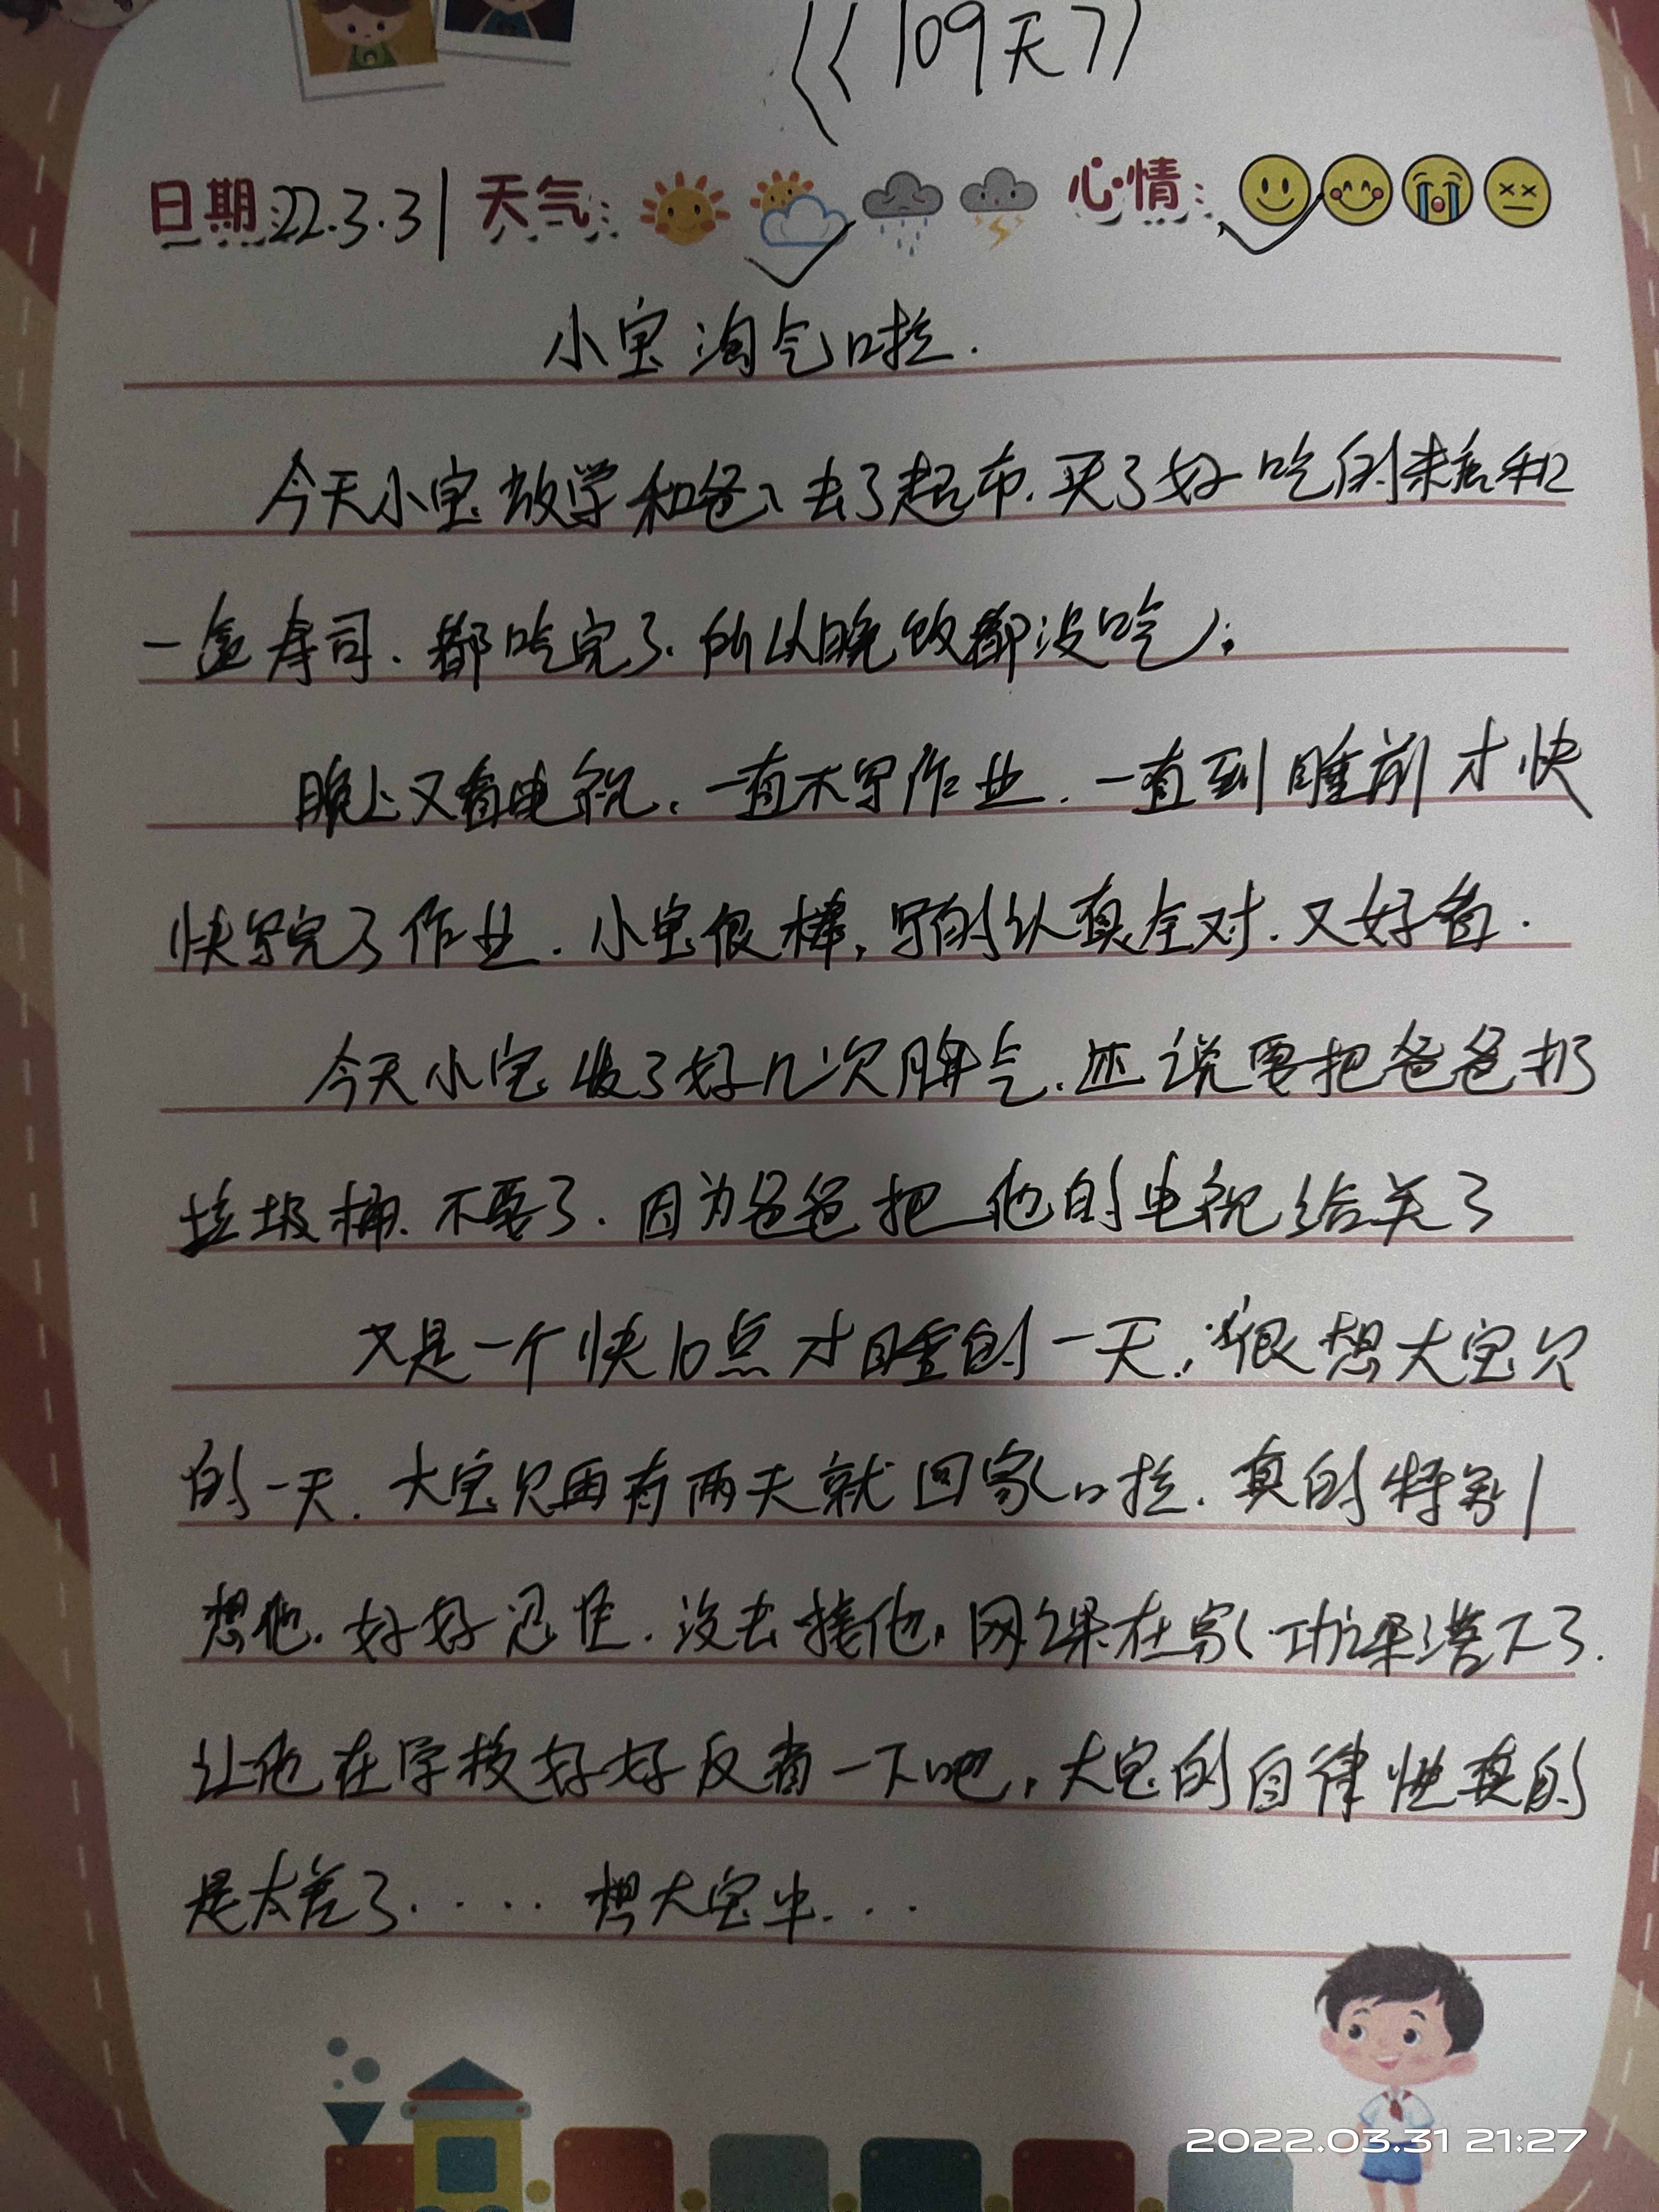 《109天》
日期:22.3.31 天气: 心情:
小宝淘气啦.
今天小宝放学和爸爸去了超市.买了好吃的辣条和
一盒寿司.都吃完了.所以晚饭都没吃.
晚上又看电视.一直不写作业.一直到睡前才快
快写完了作业.小宝很棒,写的认真全对.又好看.
今天小宝发了好几次脾气.还说要把爸爸扔
垃圾桶.不要了.因为爸爸把他的电视给关了
又是一个快10点才睡的一天.很想大宝贝
的一天.大宝贝再有两天就回家啦.真的特别
想他.好好忍住.没去接他,网课在家.功课落下了.
让他在学校好好反省一下吧,大宝的自律性真的
是太差了..... 想大宝中...
2022.03.31 21:27